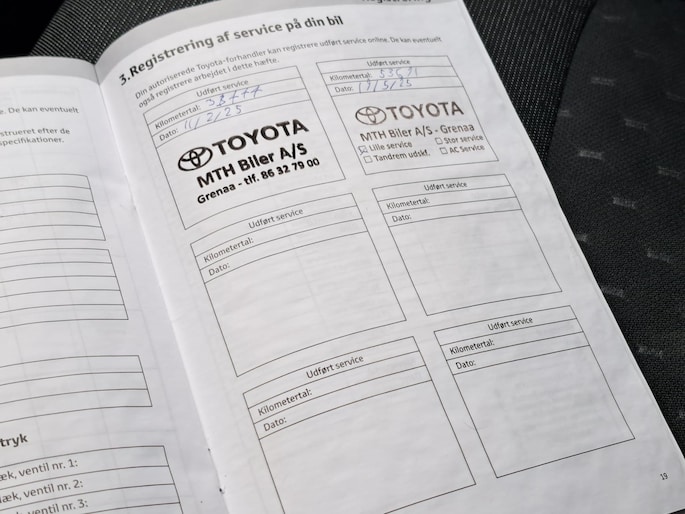 e. De kan eventuelt
strueret efter de
specifikationer.
tryk
læk, ventil nr. 1:
læk, ventil nr. 2:
læk, ventil nr. 3:
3. Registrering af service på din bil
Din autoriserede Toyota-forhandler kan registrere udført service online. De kan eventuelt
også registrere arbejdet i dette hæfte.
Udført service
Kilometertal:
Dato: 11/2/25
TOYOTA
MTH Biler A/S
Grenaa - tlf. 86 32 79 00
Udført service
Kilometertal:
Dato:
TOYOTA
MTH Biler A/S - Grenaa
Lille service Stor service
Tandrem udskf. AC Service
Udført service
Kilometertal:
Dato:
Udført service
Kilometertal:
Dato:
Udført service
Kilometertal:
Dato:
Udført service
Kilometertal:
Dato:
19